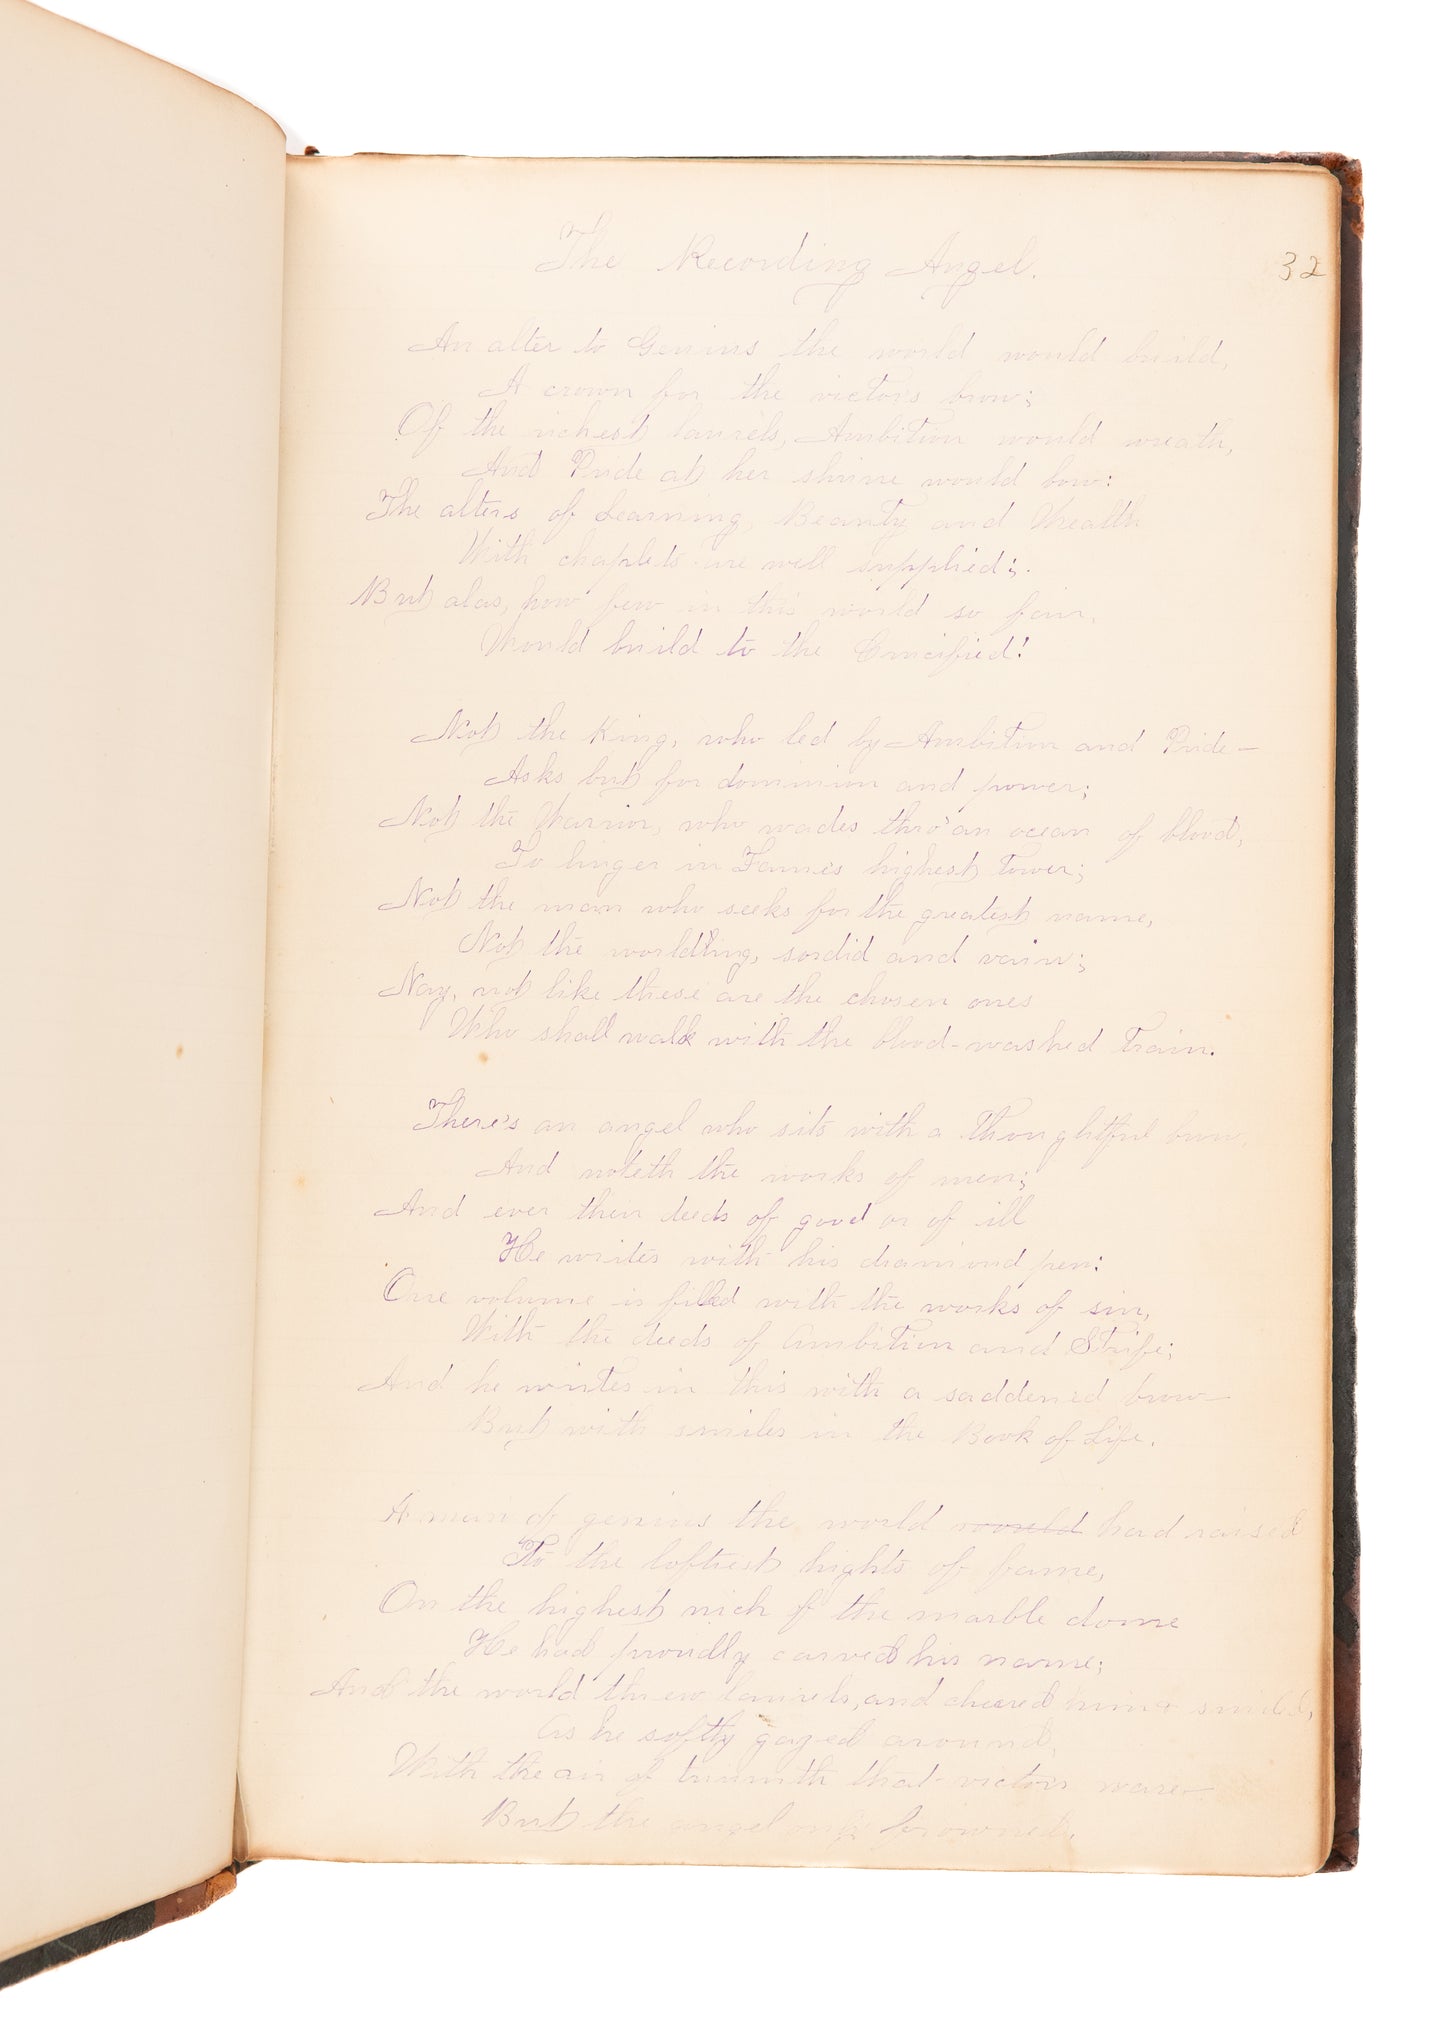 The Recording Angel.
32
An alter to Genius the world would build,
A crown for the victors brow;
Of the richest laurels, Ambition would wreath,
And Pride at her shrine would bow:
The alters of Learning, Beauty and Wealth
With chaplets are well supplied;
But alas, how few in this world so fair,
Would build to the Crucified!
Not the King, who led by Ambition and Pride—
Asks but for dominion and power;
Not the Warrior, who wades thro' an ocean of blood,
To linger in Fame's highest tower;
Not the man who seeks for the greatest name,
Not the worldling, sordid and vain;
Nay, not like these are the chosen ones
Who shall walk with the blood-washed train.
There's an angel who sits with a thoughtful brow,
And noteth the works of men;
And ever their deeds of good or of ill
He writes with his diamond pen:
One volume is filled with the works of sin,
With the deeds of Ambition and Strife;
And he writes in this with a saddened brow—
But with smiles in the Book of Life.
A man of genius the world would had raised
To the loftiest hights of fame,
On the highest nich of the marble dome
He had proudly carved his name;
And the world threw laurels, and cheered him & smiled,
As he softly gazed around,
With the air of triumth that victors wear—
But the angel only frowned.